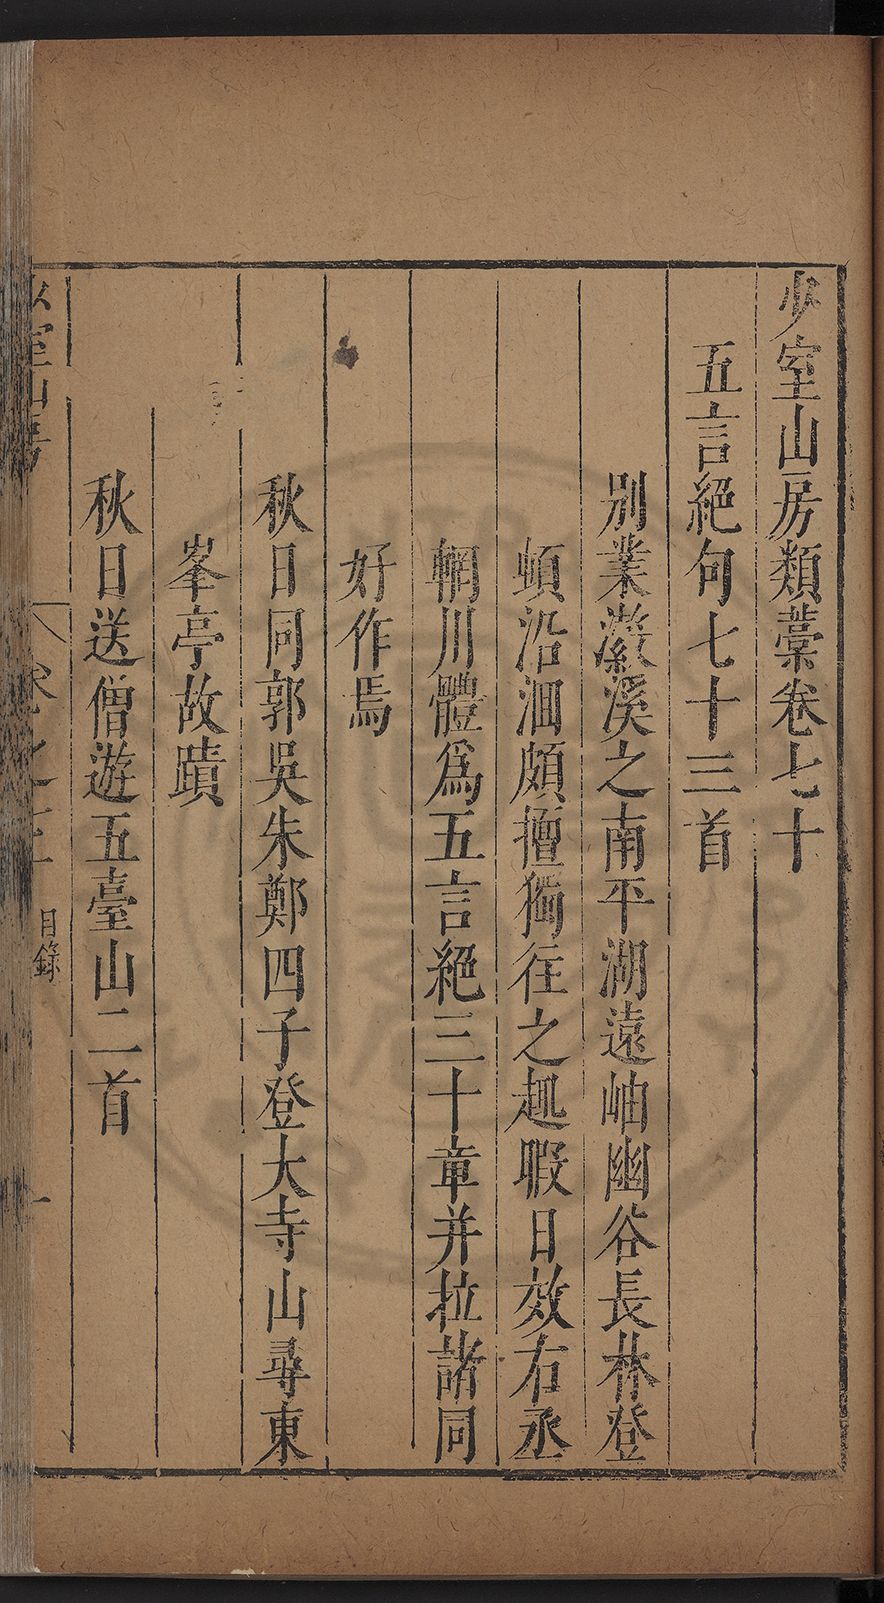 少室山房類藁卷七十
五言絕句七十三首
別業瀔溪之南平湖遠岫幽谷長林登
頓沿洄頗擅獨往之趣暇日效右丞
輞川體爲五言絕三十章并拉諸同
好作焉
秋日同郭吳朱鄭四子登大寺山尋東
峯亭故蹟
秋日送僧遊五臺山二首
室山房
目錄
一